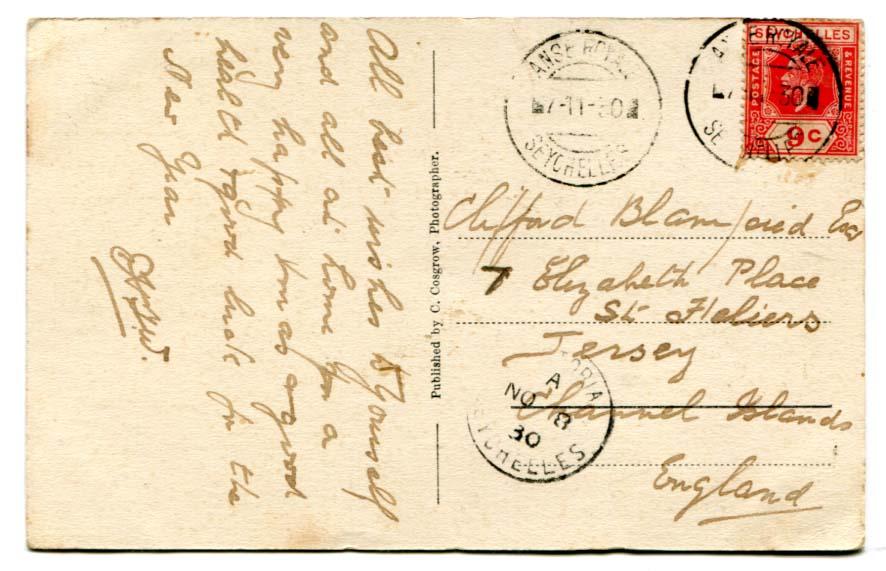 All best wishes to Yourself
and all at home for a
very happy Xmas & good
health & good luck for the
New Year
Published by C. Cosgrow, Photographer.
ANSE ROYALE
7-11-30
SEYCHELLES
ANSE ROYALE
7 30
SEYCHELLES
SEYCHELLES
POSTAGE
& REVENUE
9c
Clifford Esq
7 Elizabeth Place
St Heliers
Jersey
Channel Islands
England
VICTORIA
A
NO 8
30
SEYCHELLES